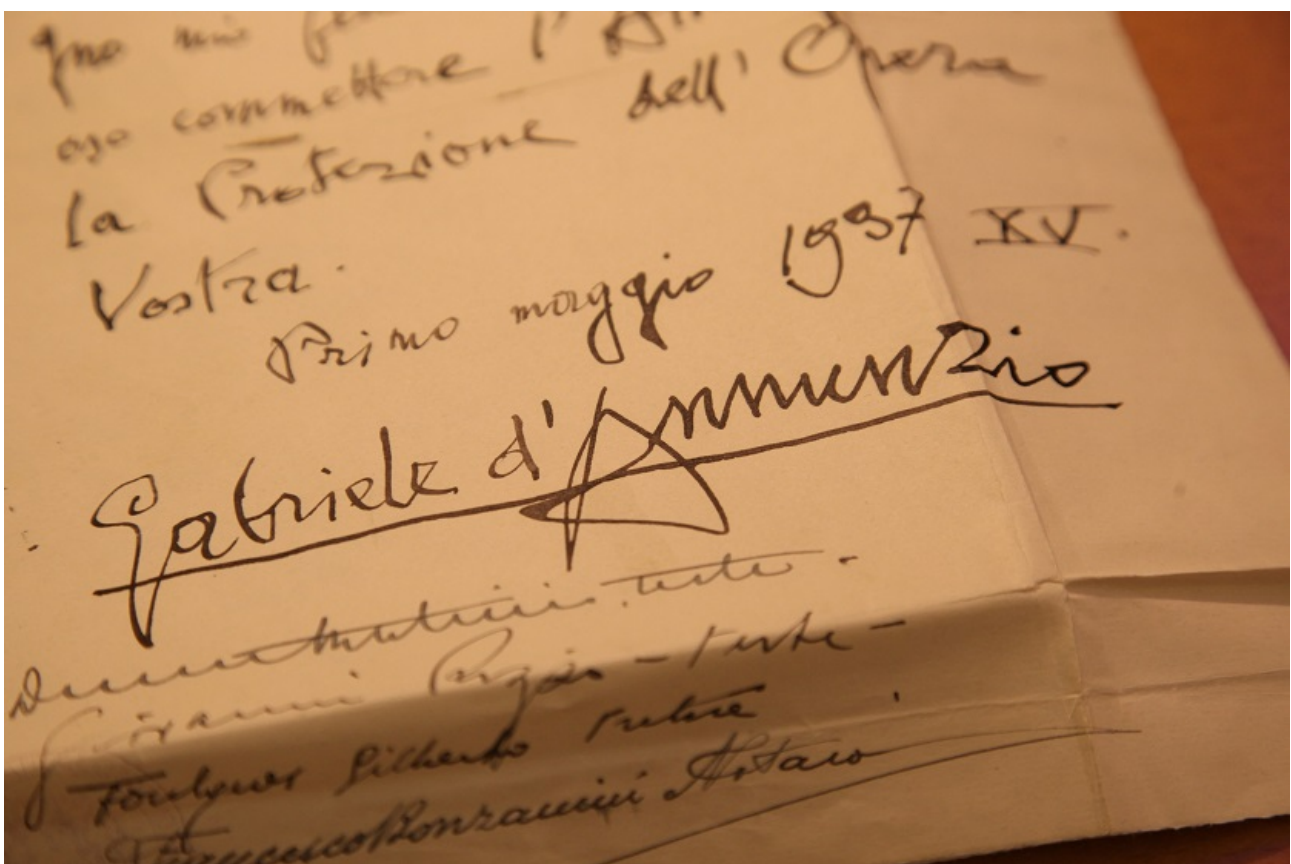 mio
oso commettere l'
la Protezione dell' Opera
Vostra.
Primo maggio 1937 XV.
Gabriele d'Annunzio
teste.
Giovanni - teste -
Gilberto
Francesco Bonzanini Notaro